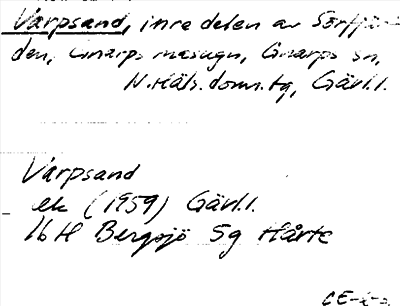 Varpsand, inre delen av Sörfjär-
den, Gnarps masugn, Gnarps sn,
N.Häls. doms.tg, Gävl.l.
Varpsand
ek (1959) Gävl.l.
16H Bergsjö 5g Hårte